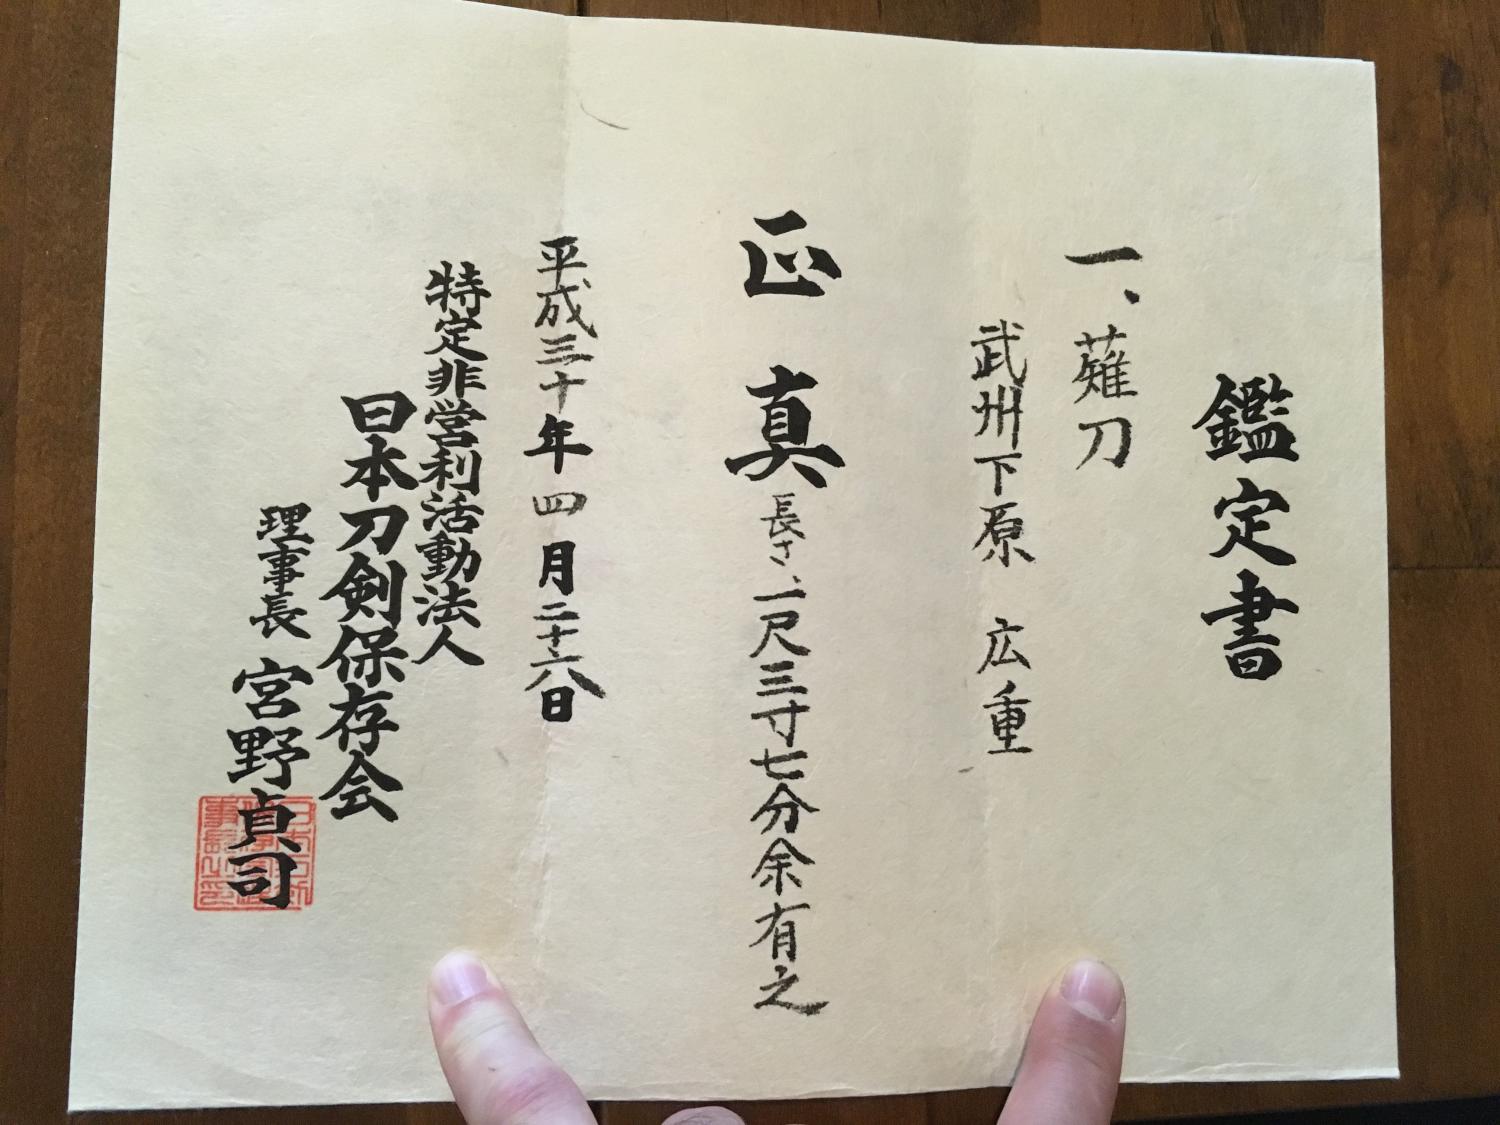 鑑定書
一、薙刀
武州下原 広重
正真
長さ、一尺三寸七分余有之
平成三十年四月二十六日
特定非営利活動法人
日本刀剣保存会
理事長 宮野貞司